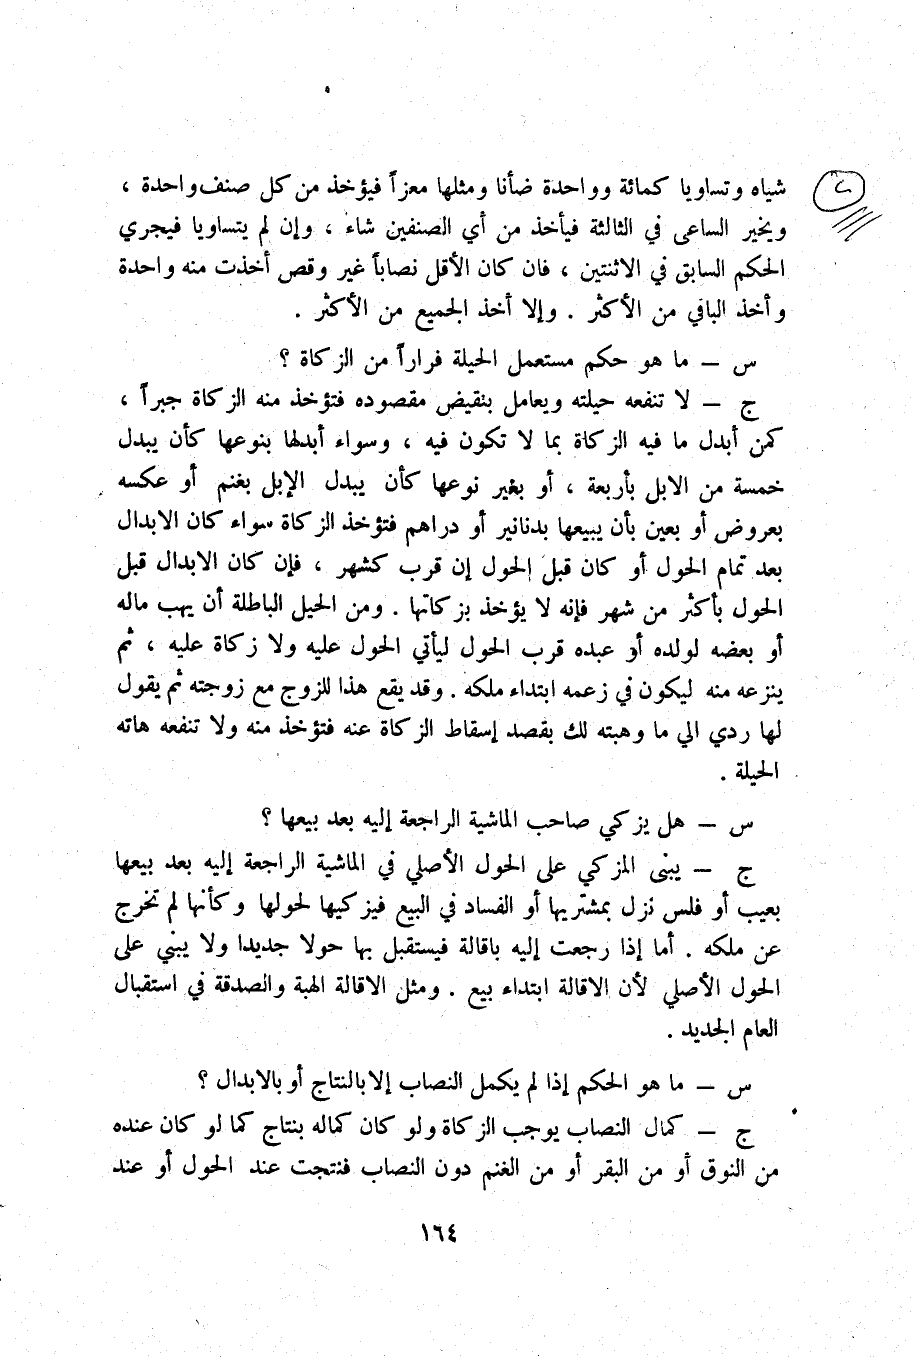 شياه وتساويا كمائة وواحدة ضأنا ومثلها معزاً فيؤخذ من كل صنف واحدة ،
ويخير الساعي في الثالثة فيأخذ من أي الصنفين شاء ، وإن لم يتساويا فيجري
الحكم السابق في الاثنتين ، فان كان الأقل نصاباً غير وقص أخذت منه واحدة
وأخذ الباقي من الأكثر . وإلا أخذ الجميع من الأكثر .
س – ما هو حكم مستعمل الحيلة فراراً من الزكاة ؟
ج – لا تنفعه حيلته ويعامل بنقيض مقصوده فتؤخذ منه الزكاة جبراً ،
كمن أبدل ما فيه الزكاة بما لا تكون فيه ، وسواء أبدلها بنوعها كأن يبدل
خمسة من الابل بأربعة ، أو بغير نوعها كأن يبدل الإبل بغنم أو عكسه
بعروض أو بعين بأن يبيعها بدنانير أو دراهم فتؤخذ الزكاة سواء كان الابدال
بعد تمام الحول أو كان قبل الحول إن قرب كشهر ، فإن كان الابدال قبل
الحول بأكثر من شهر فإنه لا يؤخذ بزكاتها . ومن الحيل الباطلة أن يهب ماله
أو بعضه لولده أو عبده قرب الحول ليأتي الحول عليه ولا زكاة عليه ، ثم
ينزعه منه ليكون في زعمه ابتداء ملكه . وقد يقع هذا للزوج مع زوجته ثم يقول
لها ردي الي ما وهبته لك بقصد إسقاط الزكاة عنه فتؤخذ منه ولا تنفعه هاته
الحيلة .
س – هل يزكي صاحب الماشية الراجعة إليه بعد بيعها ؟
ج – يبنى المزكي على الحول الأصلي في الماشية الراجعة إليه بعد بيعها
بعيب أو فلس نزل بمشتريها أو الفساد في البيع فيزكيها لحولها وكأنها لم تخرج
عن ملكه . أما إذا رجعت إليه باقالة فيستقبل بها حولا جديدا ولا يبني على
الحول الأصلي لأن الاقالة ابتداء بيع . ومثل الاقالة الهبة والصدقة في استقبال
العام الجديد .
س – ما هو الحكم إذا لم يكمل النصاب إلا بالنتاج أو بالابدال ؟
ج – كمال النصاب يوجب الزكاة ولو كان كماله بنتاج كما لو كان عنده
من النوق أو من البقر أو من الغنم دون النصاب فنتجت عند الحول أو عند
١٦٤